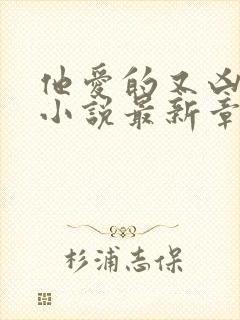 他爱的又凶
小说最新章
杉浦志保